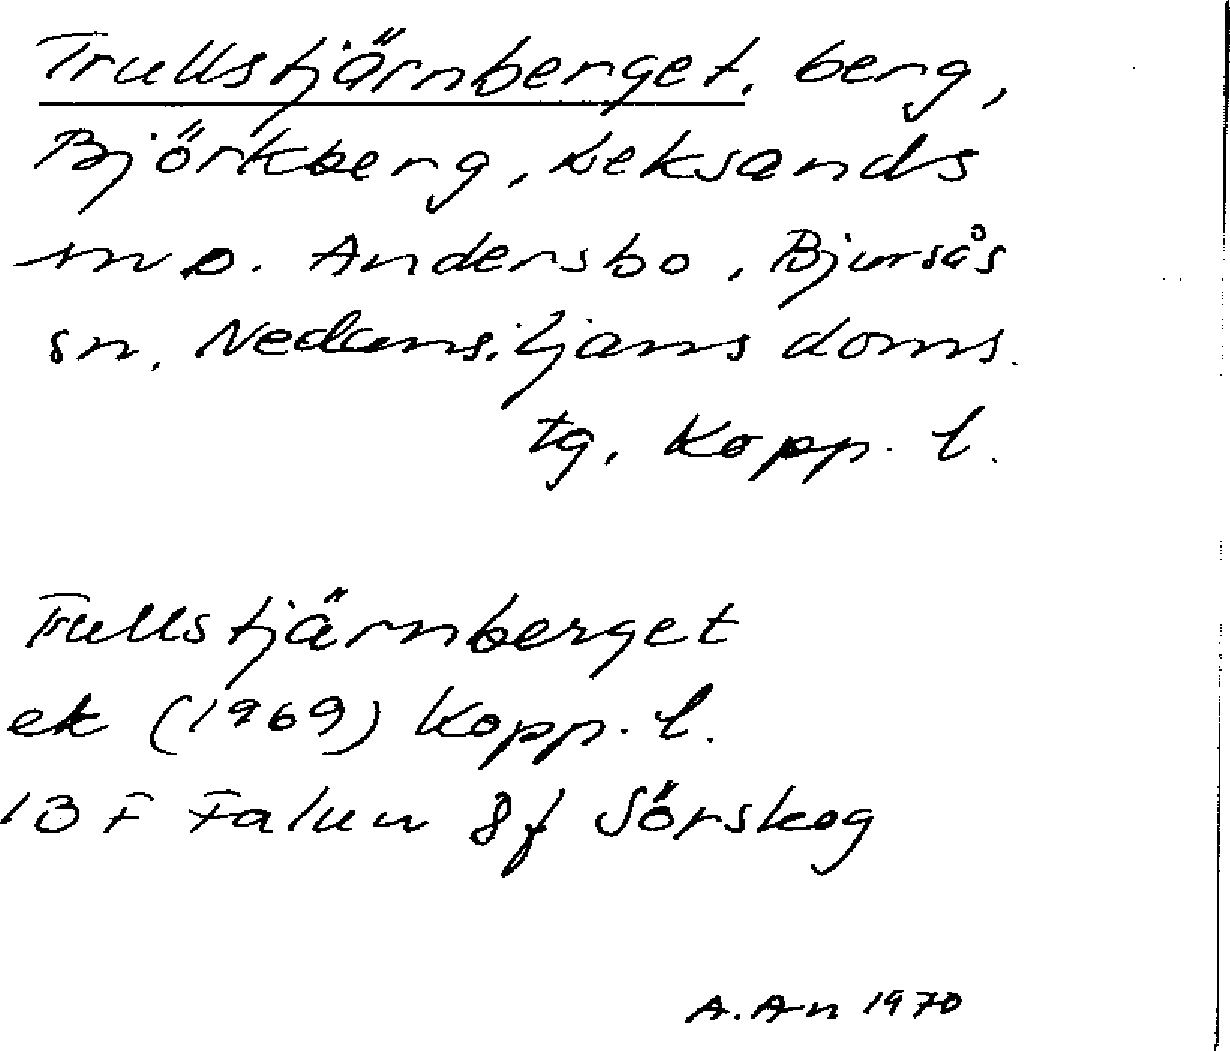 Trullstjärnberget. berg,
Björkberg, Leksands
sn o. Andersbo, Bjursås
sn, Nedansiljans doms.
tg, Kopp. l.
Trullstjärnberget
ek (1969) Kopp. l.
13 F Falun 8f Sörskog
A. An 1970